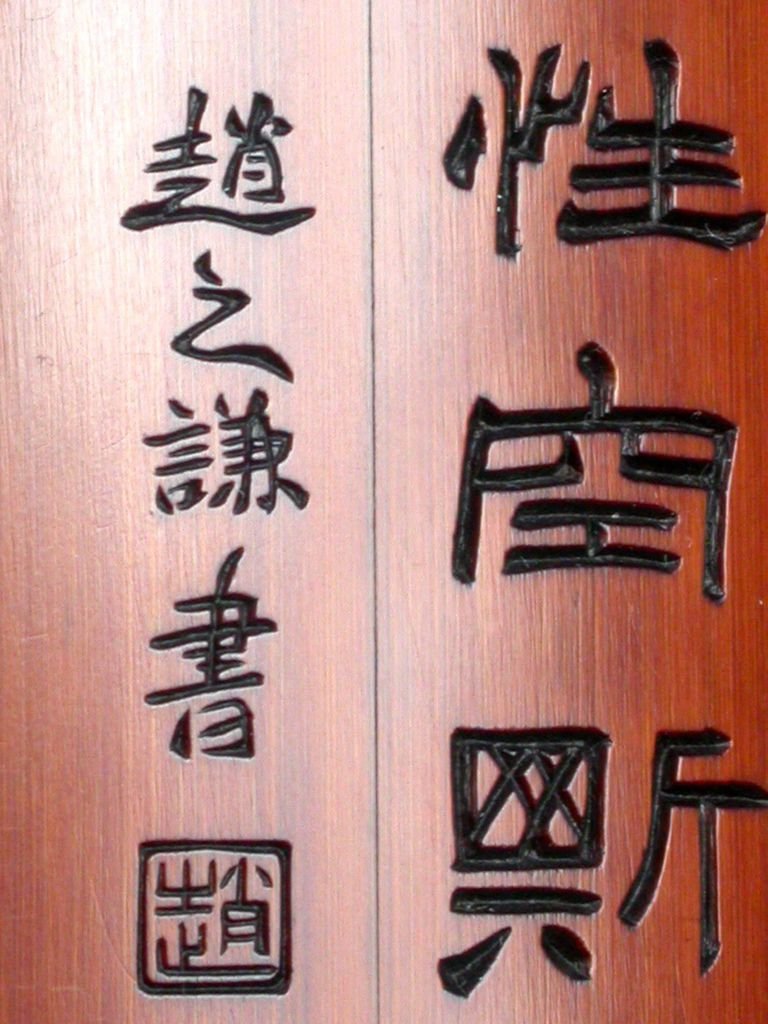 性空斯
趙之謙書
趙